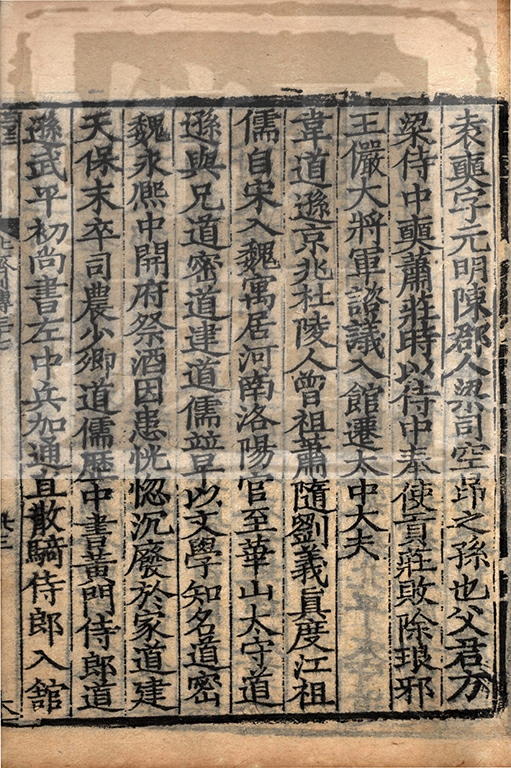 袁奭字元明陳郡人梁司空昂之孫也父君方
梁侍中奭蕭莊時以侍中奉使貢莊敗除琅邪
王儼大將軍諮議入館遷太中大夫
韋道遜京兆杜陵人曾祖蕭隨劉義眞度江祖
儒自宋入魏寓居河南洛陽官至華山太守道
遜與兄道密道建道儒竝早以文學知名道密
魏永熙中開府祭酒因患恍惚沉廢於家道建
天保末卒司農少卿道儒歷中書黃門侍郎道
遜武平初尚書左中兵加通直散騎侍郎入館